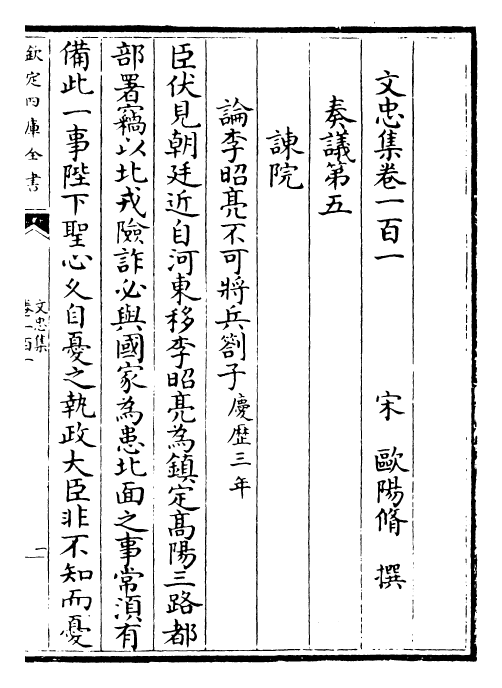 文忠集卷一百一
宋 歐陽脩 撰
奏議第五
諫院
論李昭亮不可將兵劄子慶歴三年
臣伏見朝廷近自河東移李昭亮為鎮定髙陽三路都
部署竊以北戎險詐必與國家為患北面之事常湏有
備此一事陛下聖心久自憂之執政大臣非不知而憂
欽定四庫全書
文忠集
卷一百一